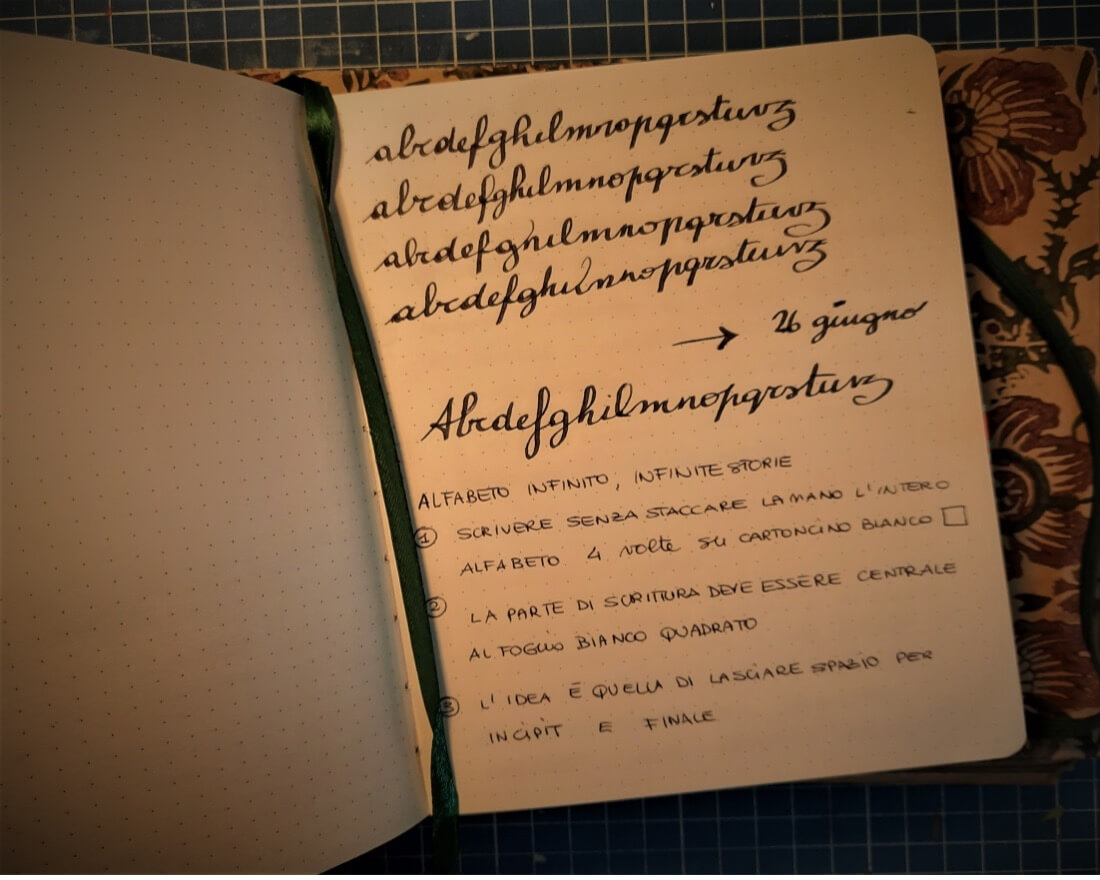 abcdefghilmnopqrstuvz
abcdefghilmnopqrstuvz
abcdefghilmnopqrstuvz
abcdefghilmnopqrstuvz
→ 26 giugno
Abcdefghilmnopqrstuvz
ALFABETO INFINITO, INFINITE STORIE
① SCRIVERE SENZA STACCARE LA MANO L'INTERO
ALFABETO 4 volte SU CARTONCINO BIANCO □
② LA PARTE DI SCRITTURA DEVE ESSERE CENTRALE
AL FOGLIO BIANCO QUADRATO
③ L'IDEA È QUELLA DI LASCIARE SPAZIO PER
INCIPIT E FINALE